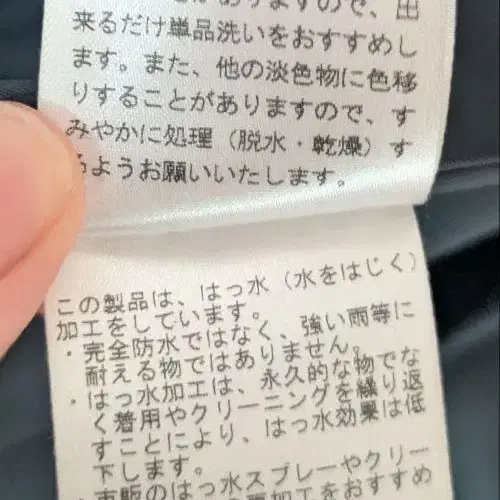 がありますので、出
来るだけ単品洗いをおすすめし
ます。また、他の淡色物に色移
りすることがありますので、す
みやかに処理（脱水・乾燥）す
るようお願いいたします。
この製品は、はっ水（水をはじく）
加工をしています。
・完全防水ではなく、強い雨等に
耐える物ではありません。
・はっ水加工は、永久的な物でな
く着用やクリーニングを繰り返
すことにより、はっ水効果は低
下します。
・市販のはっ水スプレーやクリー
加工をおすすめ